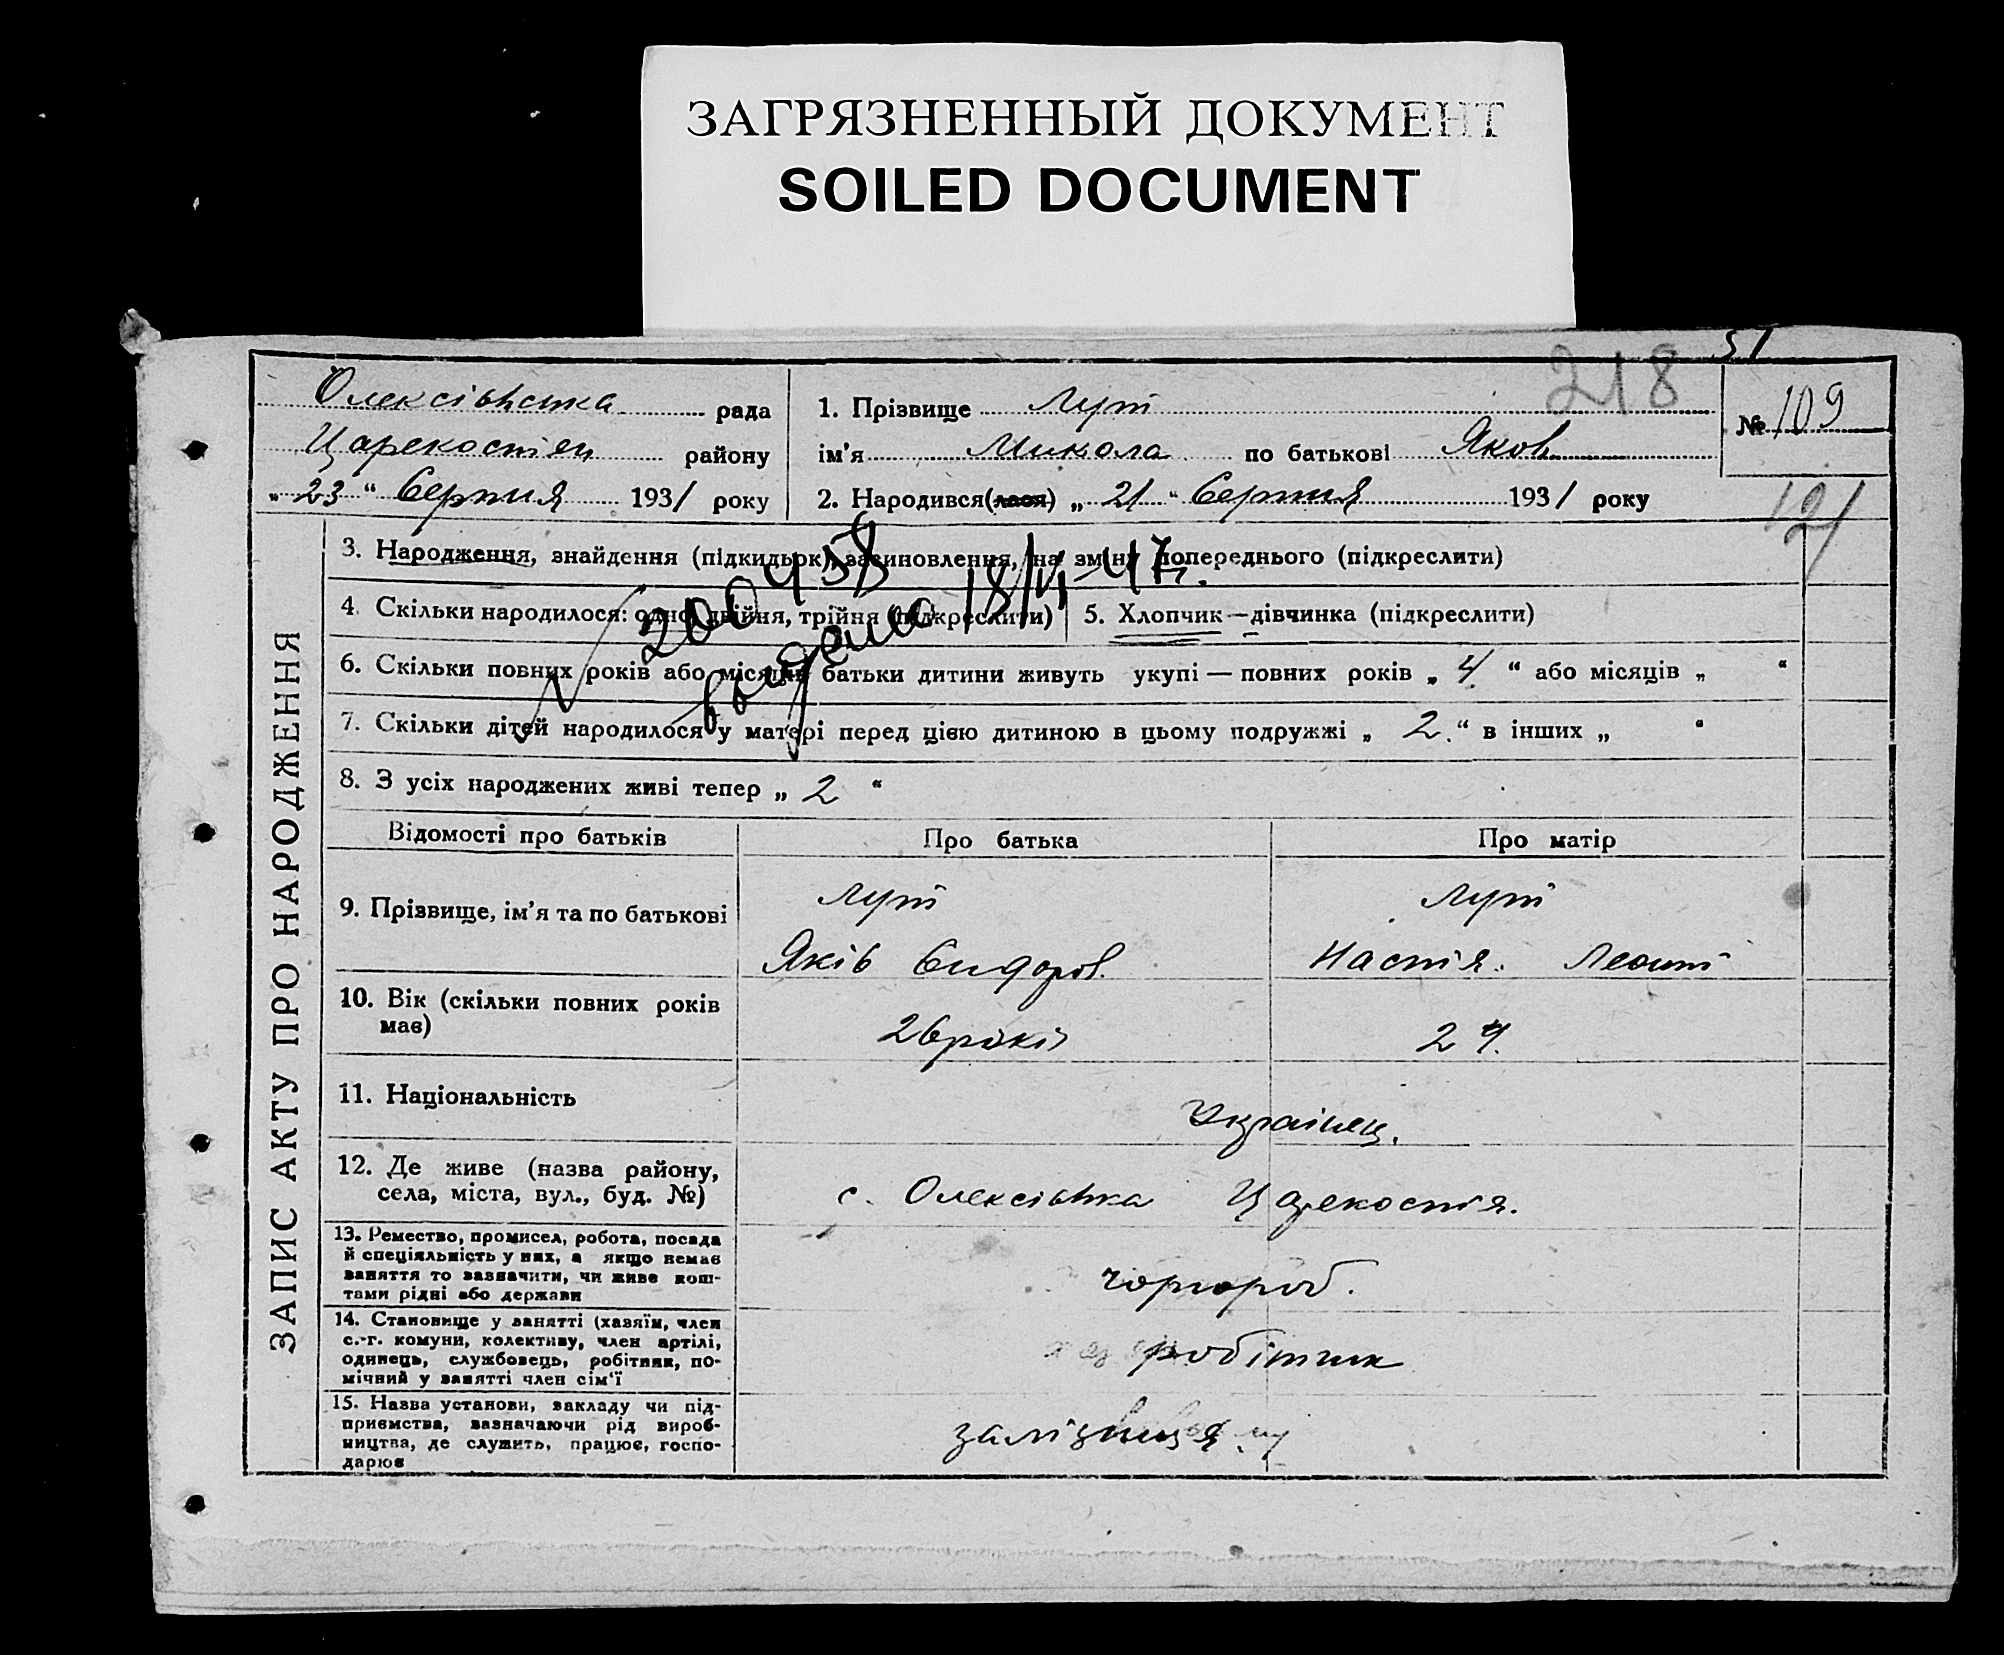 ЗАГРЯЗНЕННЫЙ ДОКУМЕНТ
SOILED DOCUMENT
51
218
Олексівська рада
Царекостян району
„ 23 “ Серпня 1931 року
1. Прізвище Лут
ім’я Микола по батькові Яков
2. Народився(лася) „ 21 “ Серпня 1931 року
№ 109
121
ЗАПИС АКТУ ПРО НАРОДЖЕННЯ
3. Народження, знайдення (підкидьок), взасиновлення, на зміну попереднього (підкреслити)
4. Скільки народилося: одно, двійня, трійня (підкреслити)
5. Хлопчик—дівчинка (підкреслити)
200458
выдано 18/4-47.
6. Скільки повних років або місяців батьки дитини живуть укупі — повних років „ 4 “ або місяців „ “
7. Скільки дітей народилося у матері перед цією дитиною в цьому подружжі „ 2. “ в інших „ “
8. З усіх народжених живі тепер „ 2 “
Відомості про батьків
Про батька
Про матір
9. Прізвище, ім’я та по батькові
Лут
Яків Сидоров.
Лут
Настя. Леонт
10. Вік (скільки повних років
має)
26 років
24.
11. Національність
Українец.
12. Де живе (назва району,
села, міста, вул., буд. №)
с. Олексівка Царекостя.
13. Ремество, промисел, робота, посада
й спеціяльність у них, а якщо немає
заняття то зазначити, чи живе кош-
тами рідні або держави
чорнороб.
14. Становище у занятті (хазяїн, член
с.-г. комуни, колективу, член артілі,
одинець, службовець, робітник, по-
мічний у занятті член сім’ї
робітник
15. Назва установи, закладу чи під-
приємства, зазначаючи рід вироб-
ництва, де служить, працює, госпо-
дарює
залізниця